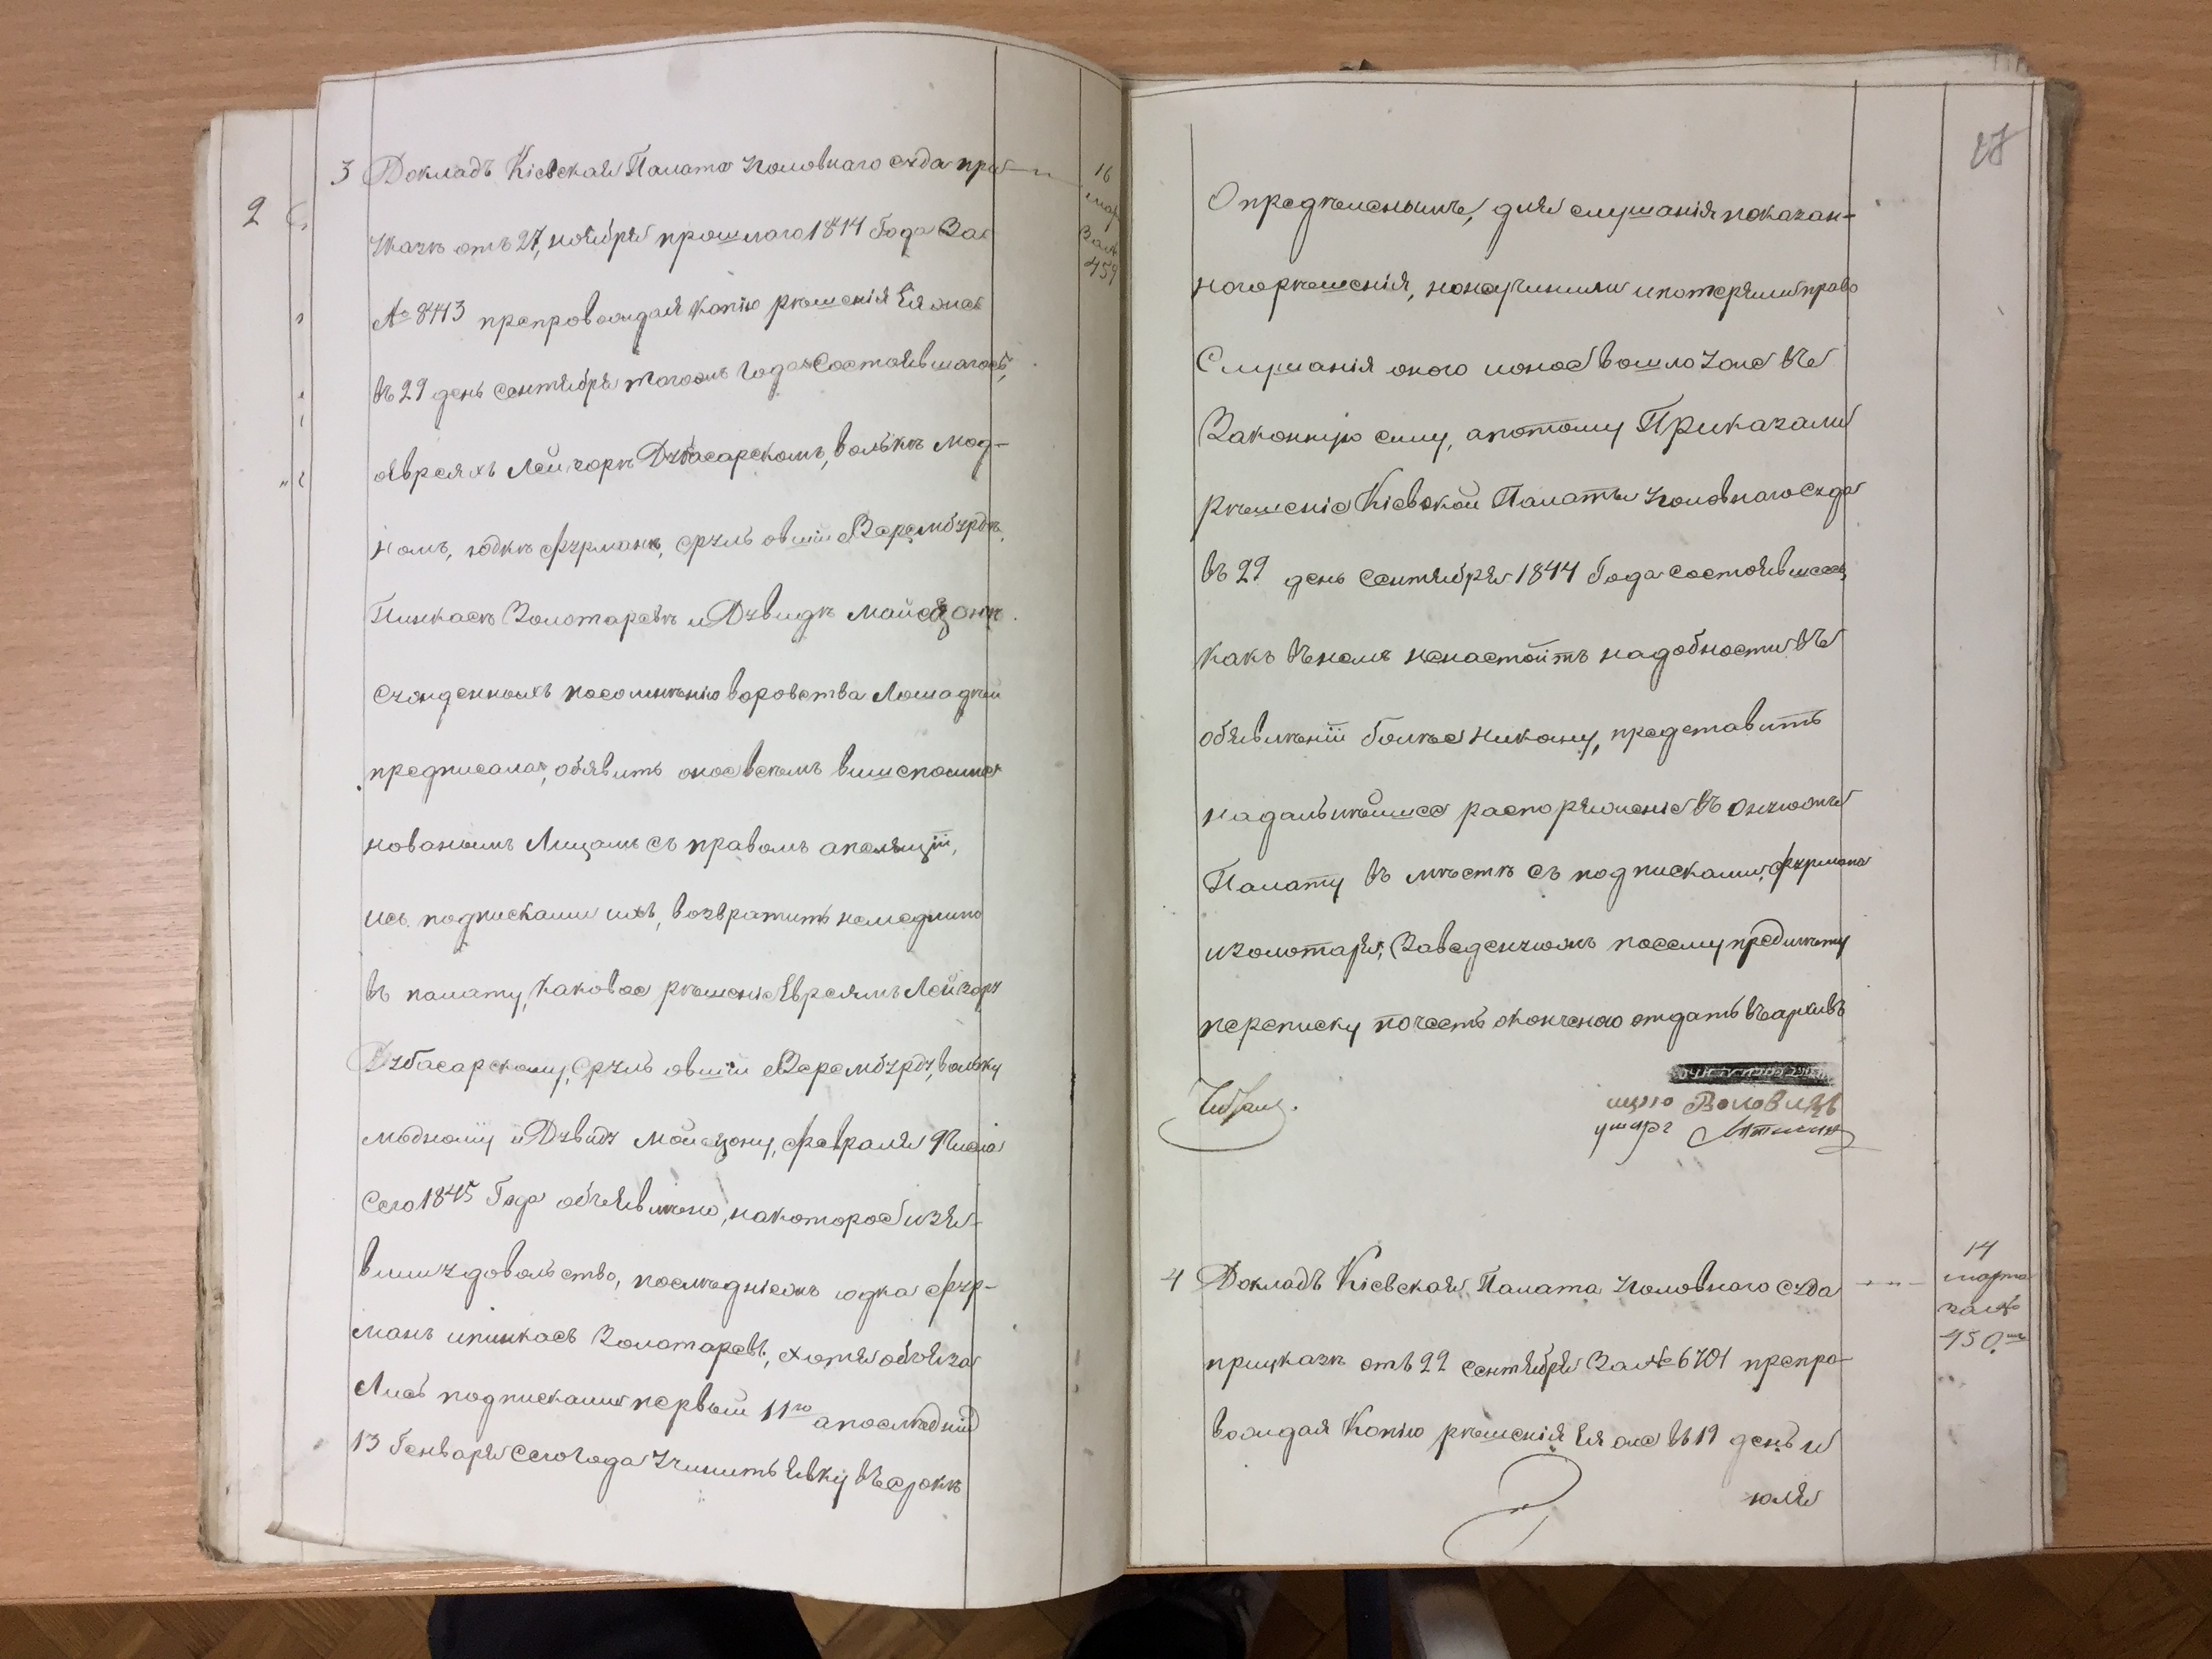 2
3 Докладъ Кіевская Палата Уголовнаго Суда при
Указѣ отъ 27, ноября прошлаго 1844 Года За
№ 8443 препровождая копію рѣшенія Ея же
въ 29 день сентября тогожъ Года Состоявшагось,
о Евреяхъ Лейзорѣ Дубасарскомъ, волькѣ Мед-
номъ, юдкѣ Фурманѣ, Сруль овшіи Верембурдѣ,
Пинкасѣ Золотаревѣ и Дувидѣ Мойсѣ
Сужденныхъ посомнѣнію воровства Лошадѣй
предписала, обявить оное всемъ вышепоиме
нованнымъ Лицамъ съ правомъ апеляціи,
исъ подписками ихъ, возвратить немедлино
въ палату, каковое рѣшеніе Евреямъ Лейзору
Дубасарскому, Сруль овшіи Верембурду, вольку
мѣдному и Дувиду Мойсу, февраля 9 числа
Сего 1845 Года объявлѣно, на которое изъя-
вили удовольство, послѣдніежъ юдка Фур-
манъ ипинкасъ Золотаревъ, хотя обяза
Лись подписками первый 11го апослѣдній
13 Генваря Сего Года Учинить явку въ срокъ
16
мар
За №
459
27
Опредѣленымъ, для слушанія показан-
ногорѣшенія, нонеучинили ипотеряли право
Слушанія оного ионое вошло уже въ
Законную силу, апотому Приказали
рѣшеніе Кіевской Палаты Уголовнаго Суда
въ 29 день Сентября 1844 Года состоявшеесь,
какъ въ немъ ненастоитъ надобности въ
обявлѣніи болѣе никому, представить
надальнѣйшее распоряженіе въ онуюжъ
Палату въ мѣстѣ съ подписками, Фурмана
изолотаря, Заведенуюжъ посему предмѣту
переписку почесть оконченою отдать въ архивъ
4 Докладъ Кіевская Палата Уголовнаго Суда
приуказѣ отъ 22 сентября За № 6701 препро-
вождая Копію рѣшенія Ея же въ 19 день и
юля
14
марта
за №
450